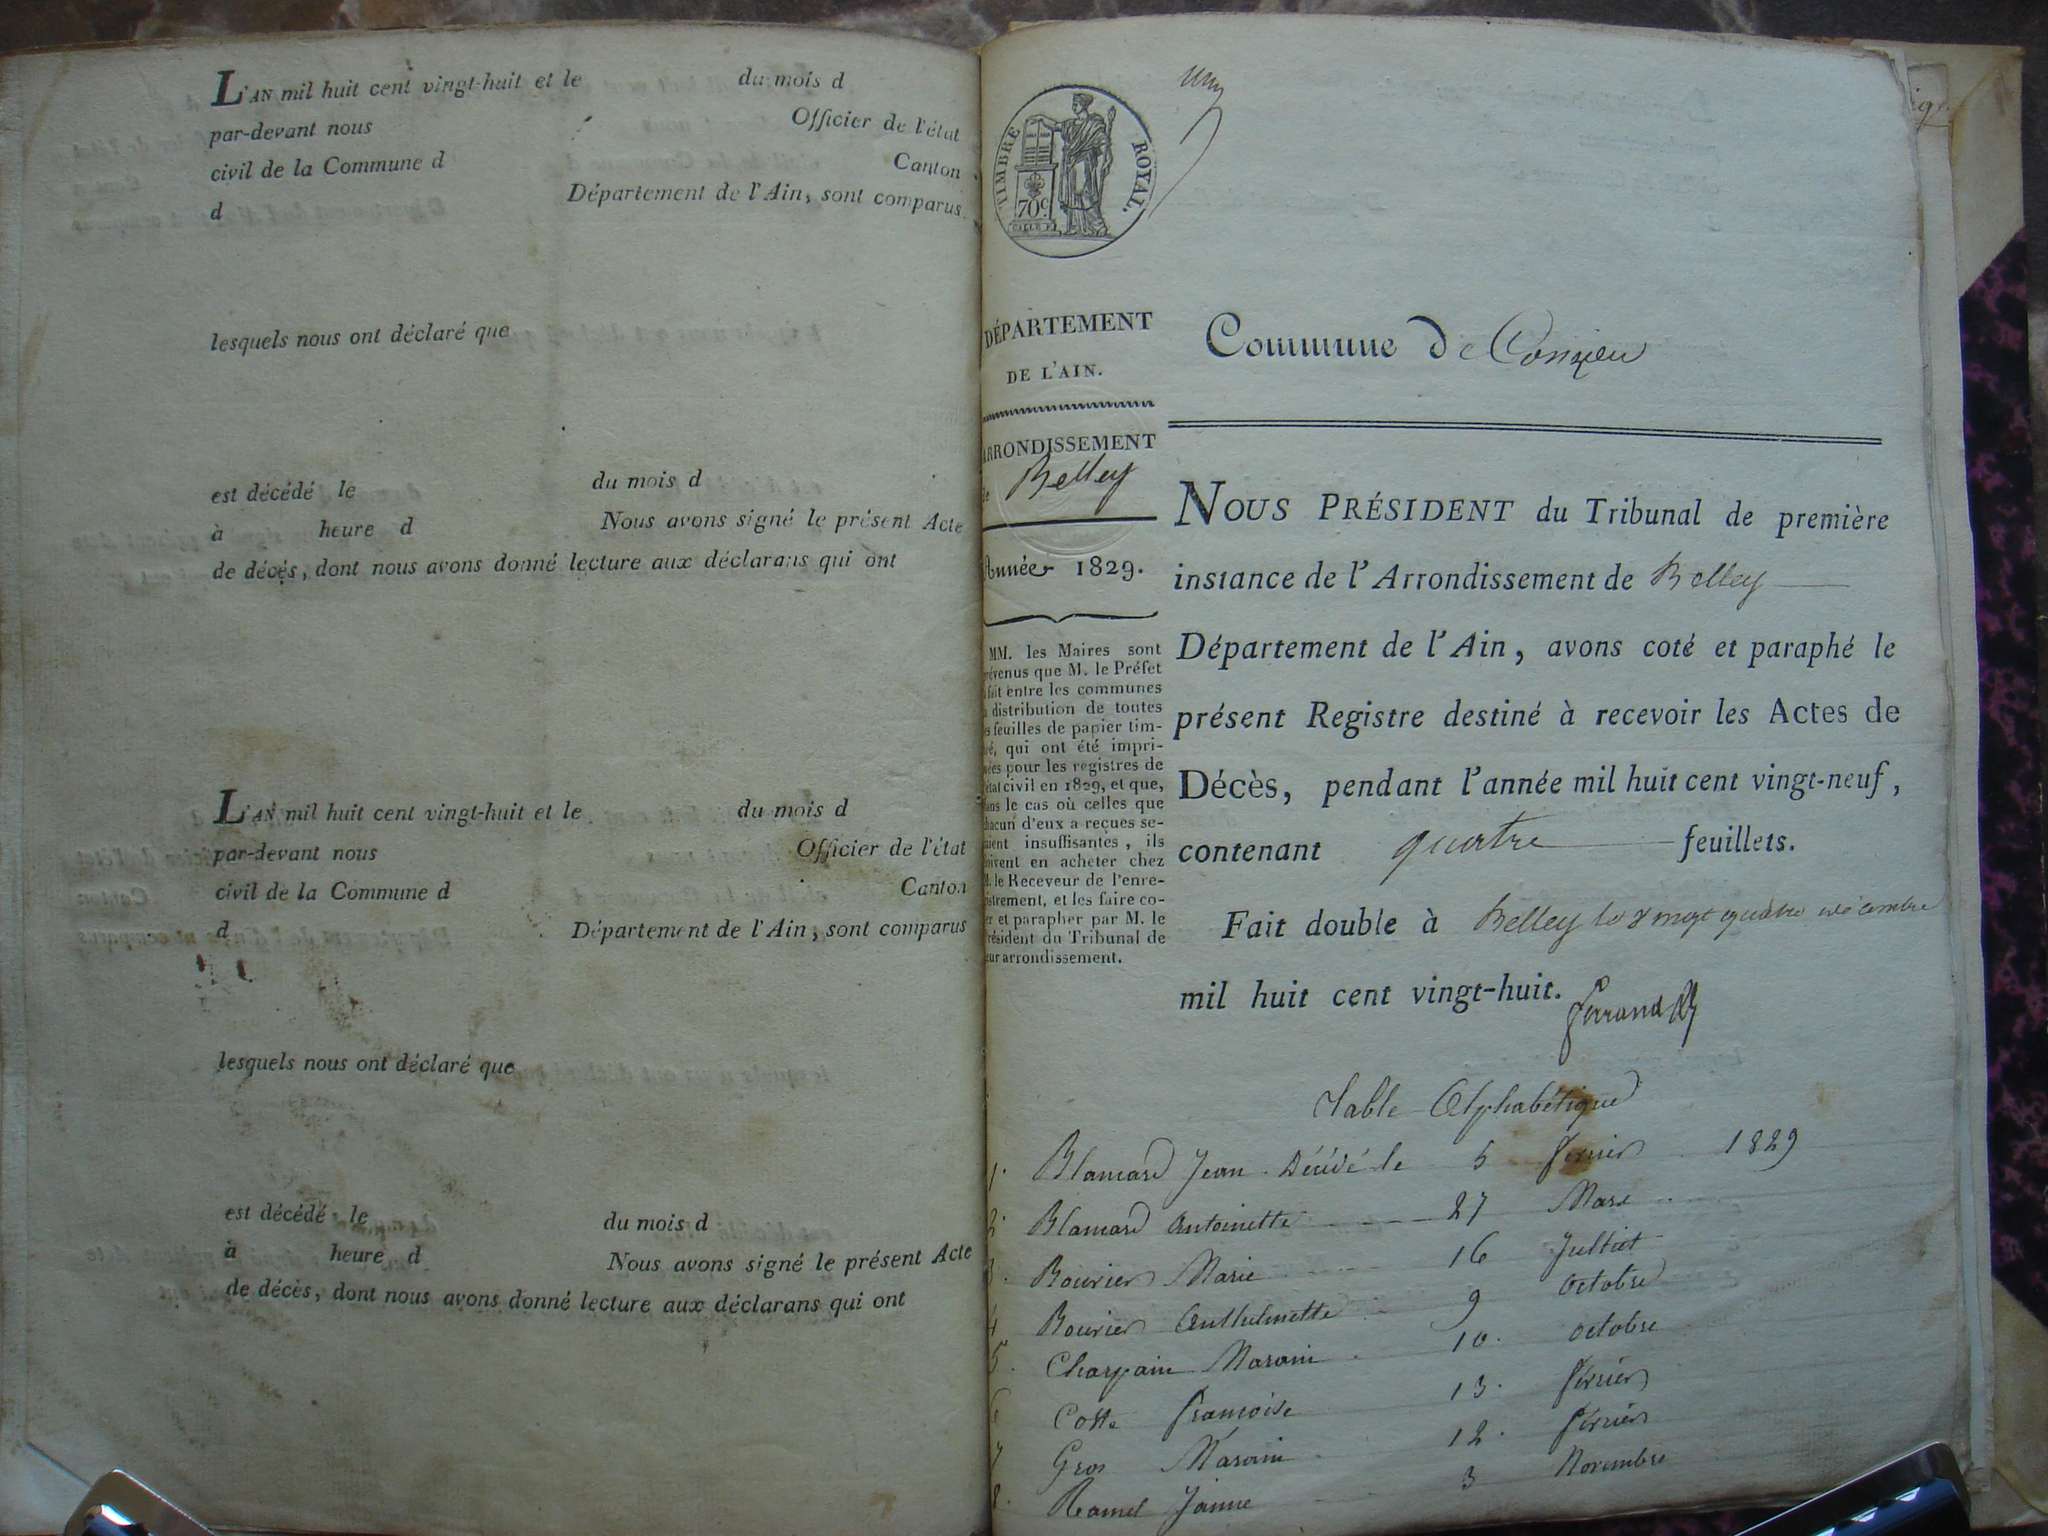 L'AN mil huit cent vingt-huit et le du mois d
par-devant nous Officier de l'état
civil de la Commune d Canton
d Département de l'Ain, sont comparus
lesquels nous ont déclaré que
est décédé le du mois d
à heure d Nous avons signé le présent Acte
de décès, dont nous avons donné lecture aux déclarans qui ont
L'AN mil huit cent vingt-huit et le du mois d
par-devant nous Officier de l'état
civil de la Commune d Canton
d Département de l'Ain, sont comparus
lesquels nous ont déclaré que
est décédé le du mois d
à heure d Nous avons signé le présent Acte
de décès, dont nous avons donné lecture aux déclarans qui ont
TIMBRE ROYAL.
70c
DÉPARTEMENT
DE L'AIN.
ARRONDISSEMENT
de Belley
Année 1829.
MM. les Maires sont
prévenus que M. le Préfet
a fait entre les communes
la distribution de toutes
les feuilles de papier tim-
bré, qui ont été impri-
mées pour les registres de
l'état civil en 1829, et que,
dans le cas où celles que
chacun d'eux a reçues se-
raient insuffisantes, ils
doivent en acheter chez
M. le Receveur de l'enre-
gistrement, et les faire co-
ter et parapher par M. le
Président du Tribunal de
leur arrondissement.
Commune de Conzieu
NOUS PRÉSIDENT du Tribunal de première
instance de l'Arrondissement de Belley
Département de l'Ain, avons coté et paraphé le
présent Registre destiné à recevoir les Actes de
Décès, pendant l'année mil huit cent vingt-neuf,
contenant quatre feuillets.
Fait double à Belley le vingt quatre décembre
mil huit cent vingt-huit.
Table Alphabétique
1. Blancard Jean Décédé le 5 février 1829
2. Blancard Antoinette 27 Mars
3. Bourier Marie 16 Juillet
4 Bourier Anthelmette 9 octobre
5. Charpain Marain 10. octobre
6 Coste françoise 13. février
7 Gros Marain 12. février
8. Ramel Janne 3 Novembre